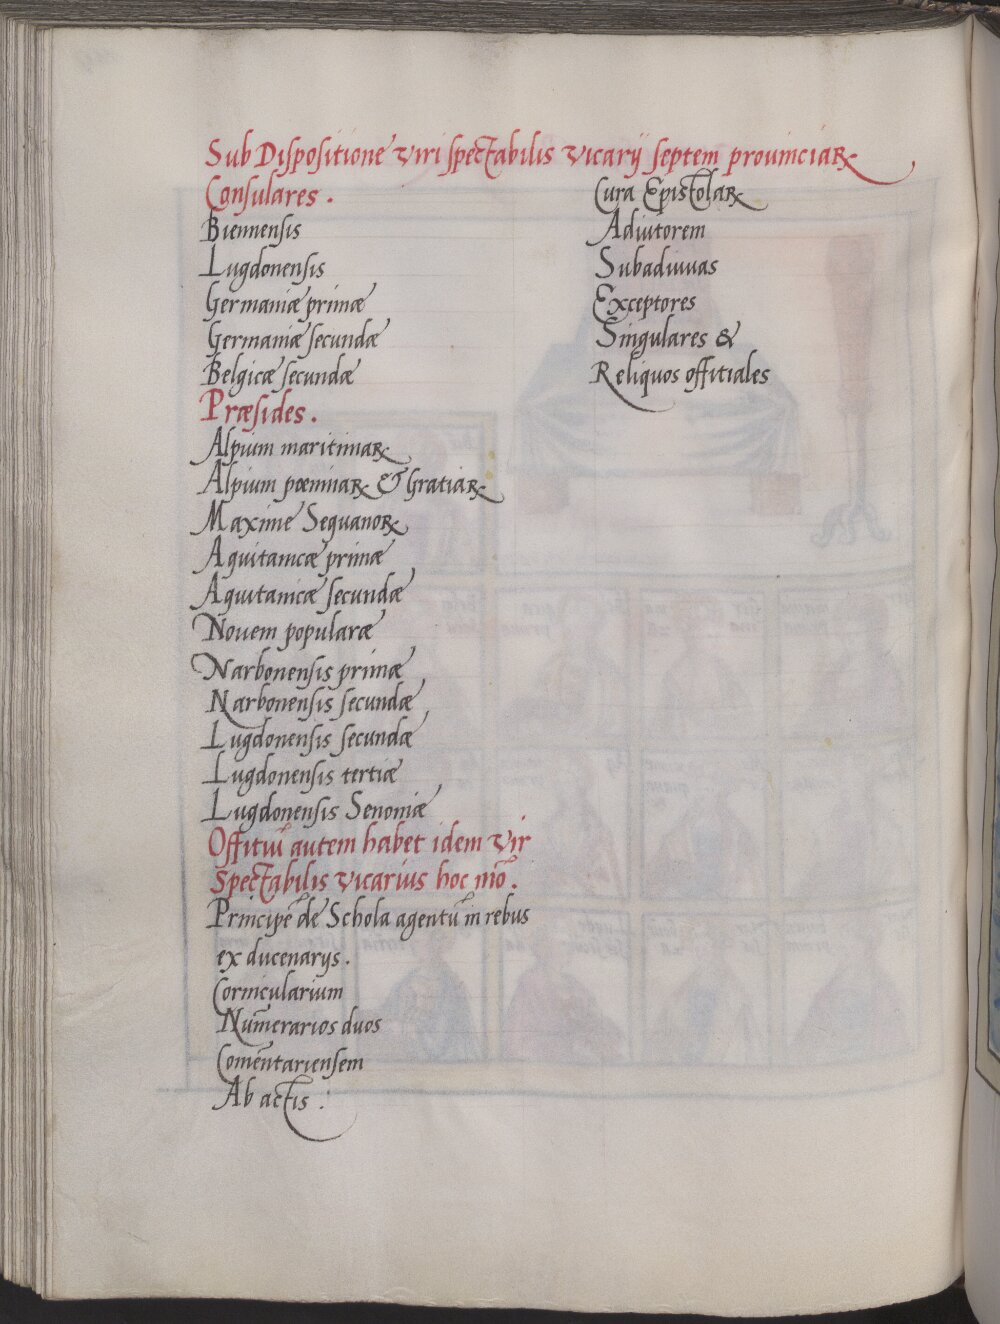 Sub Dispositione viri spectabilis vicarij septem prouinciaꝝ
Consulares .
Biennensis
Lugdonensis
Germaniæ primæ
Germaniæ secundæ
Belgicæ secundæ
Præsides .
Alpium maritimaꝝ
Alpium pœninaꝝ & Gratiaꝝ
Maxime Sequanoꝝ
Aquitanicæ primæ
Aquitanicæ secundæ
Nouem popularæ
Narbonensis primæ
Narbonensis secundæ
Lugdonensis secundæ
Lugdonensis tertiæ
Lugdonensis Senoniæ
Offitiũ autem habet idem vir
Spectabilis vicarius hoc mõ .
Principẽ de Schola agentũ in rebus
ex ducenarijs .
Cornicularium
Nũmerarios duos
Comẽntariensem
Ab actis :
Cura Epistolaꝝ
Adiutorem
Subadiuuas
Exceptores
Singulares &
Reliquos offitiales